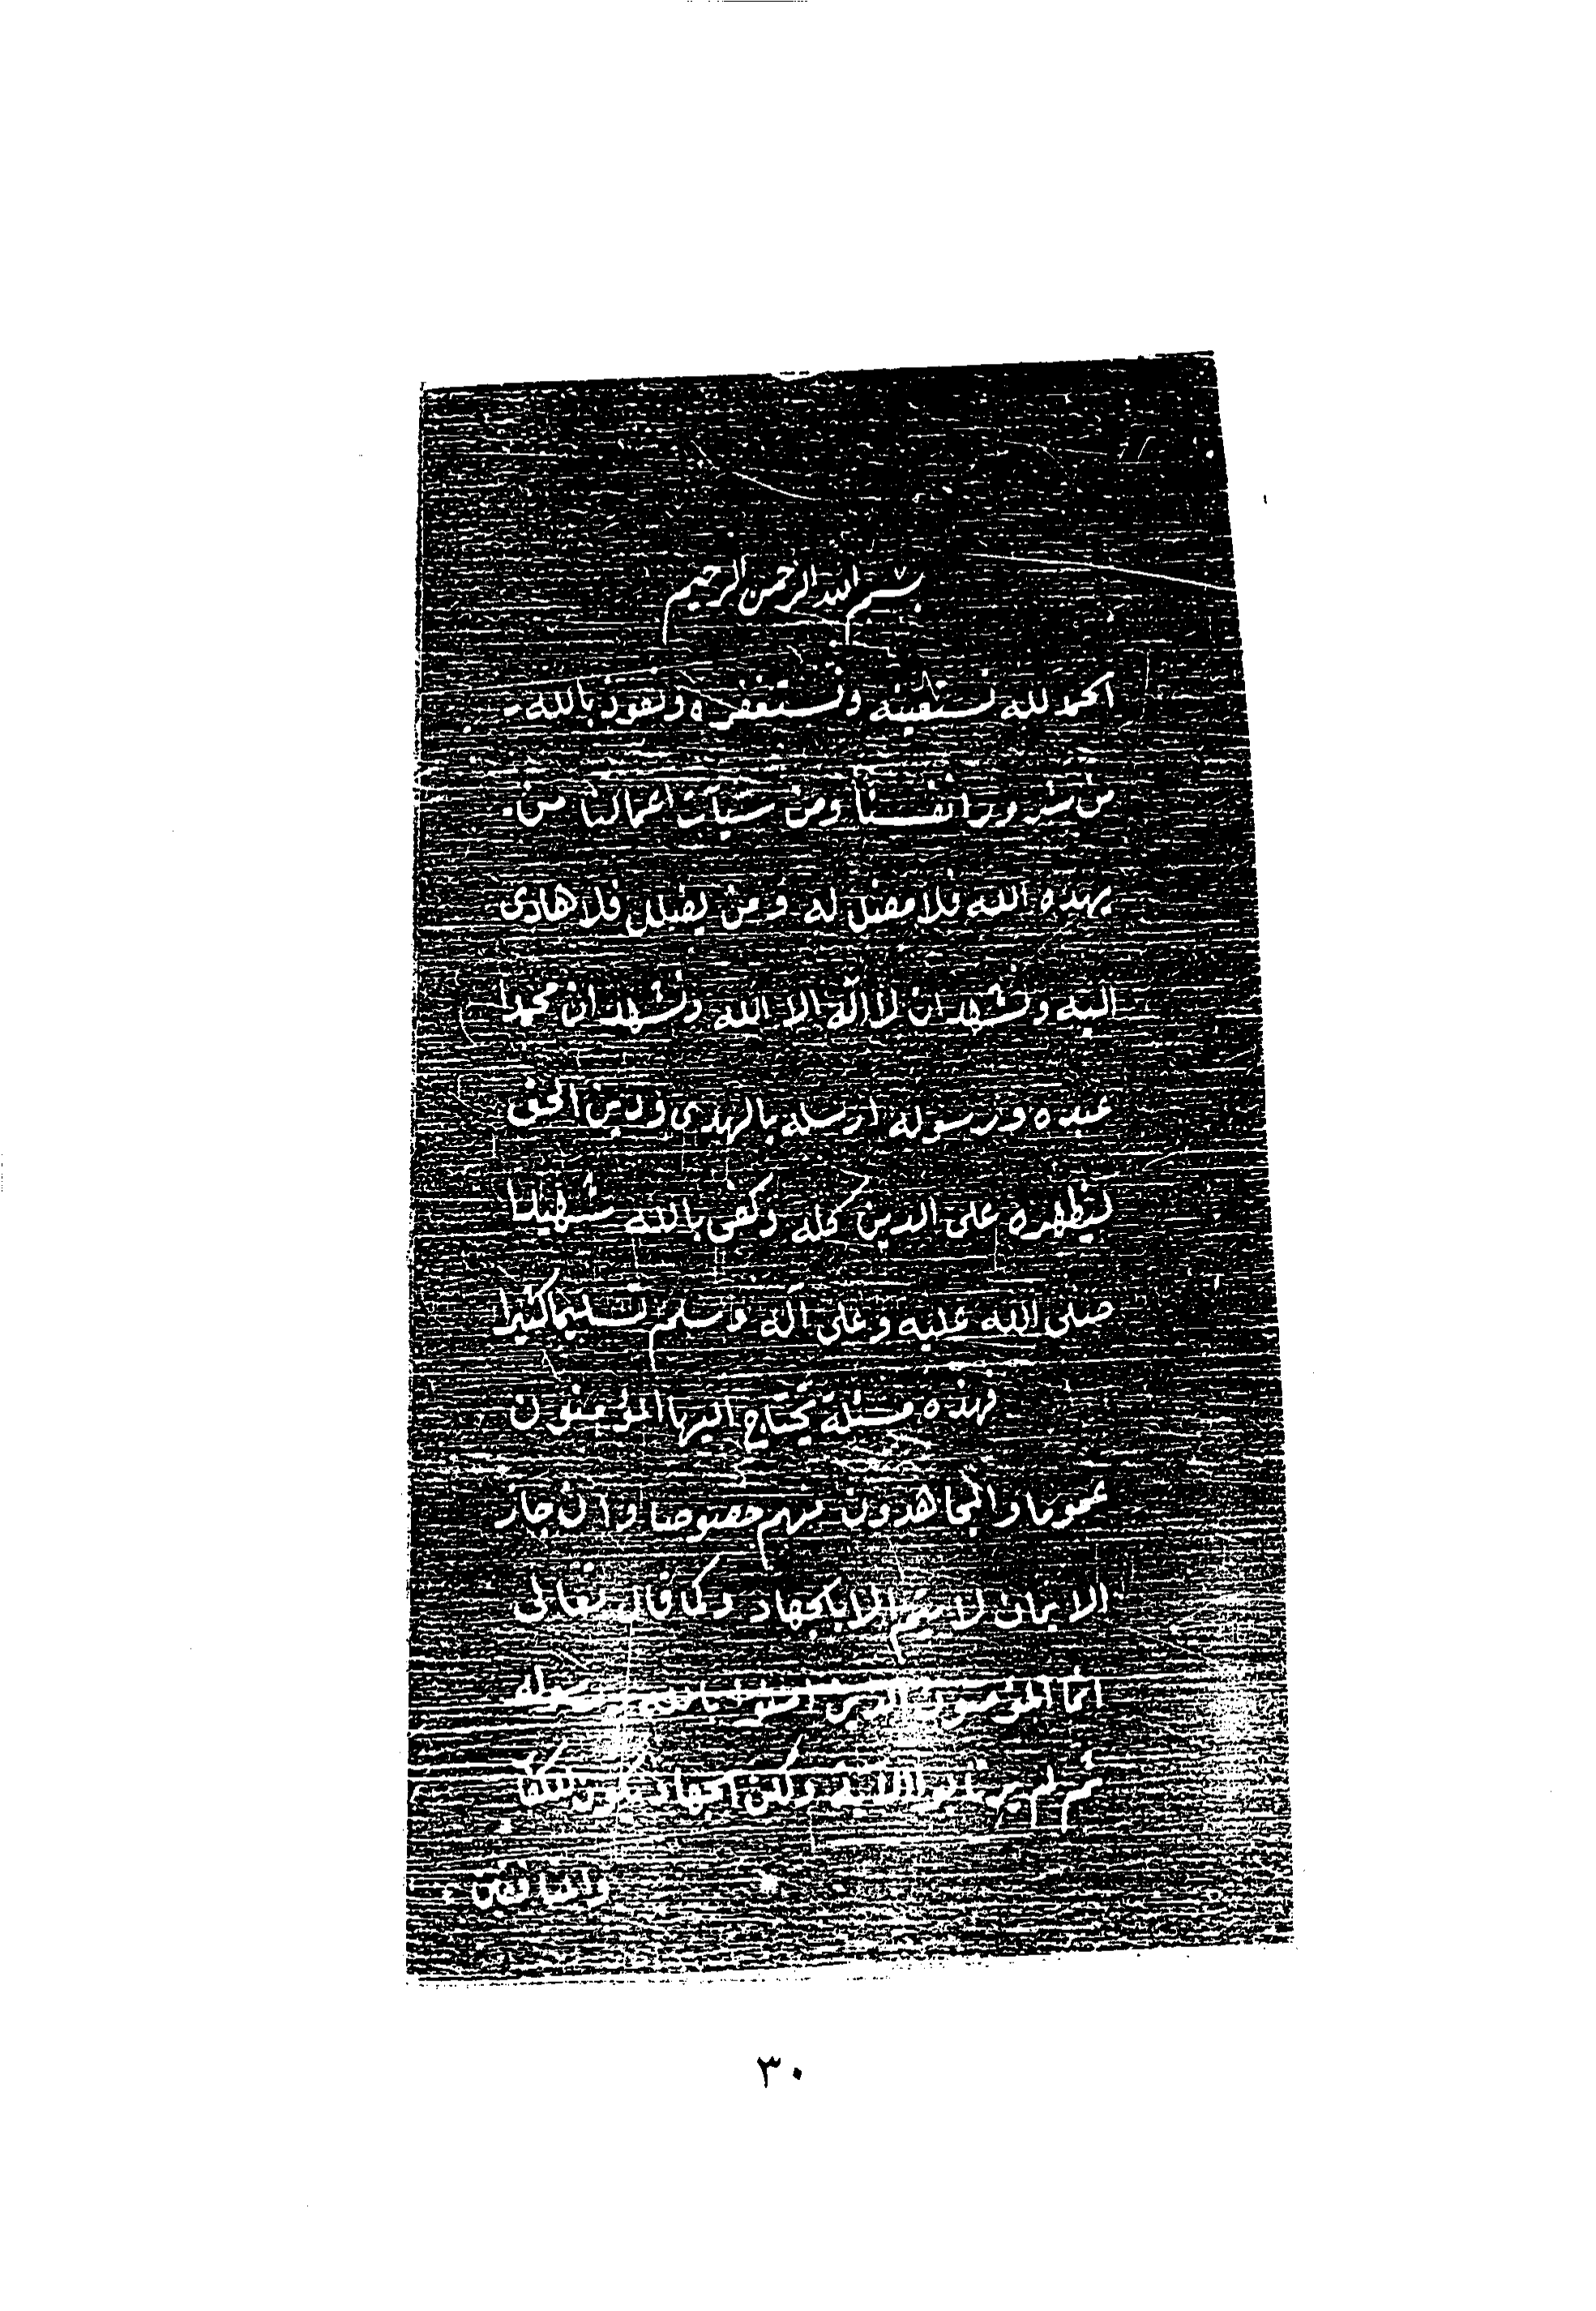 بسم الله الرحمن الرحيم
الحمد لله نستعينه ونستغفره ونعوذ بالله
من شرور انفسنا ومن سيآت اعمالنا من
يهده الله فلا مضل له ومن يضلل فلا هادى
اليه ونشهد ان لا اله الا الله ونشهد ان محمدا
عبده ورسوله ارسله بالهدى ودين الحق
ليظهره على الدين كله وكفى بالله شهيدا
صلى الله عليه وعلى آله وسلم تسليما كثيرا
فهذه مسئلة يحتاج اليها المؤمنون
عموما والمجاهدون منهم خصوصا وان جاز
الايمان لا يتم الا بالجهاد وكما قال تعالى
انما المؤمنون الذين امنوا بالله ورسوله
ثم لم يرتابوا الاية ولكن الجهاد يكون للكفا
والمنافقين
٣٠